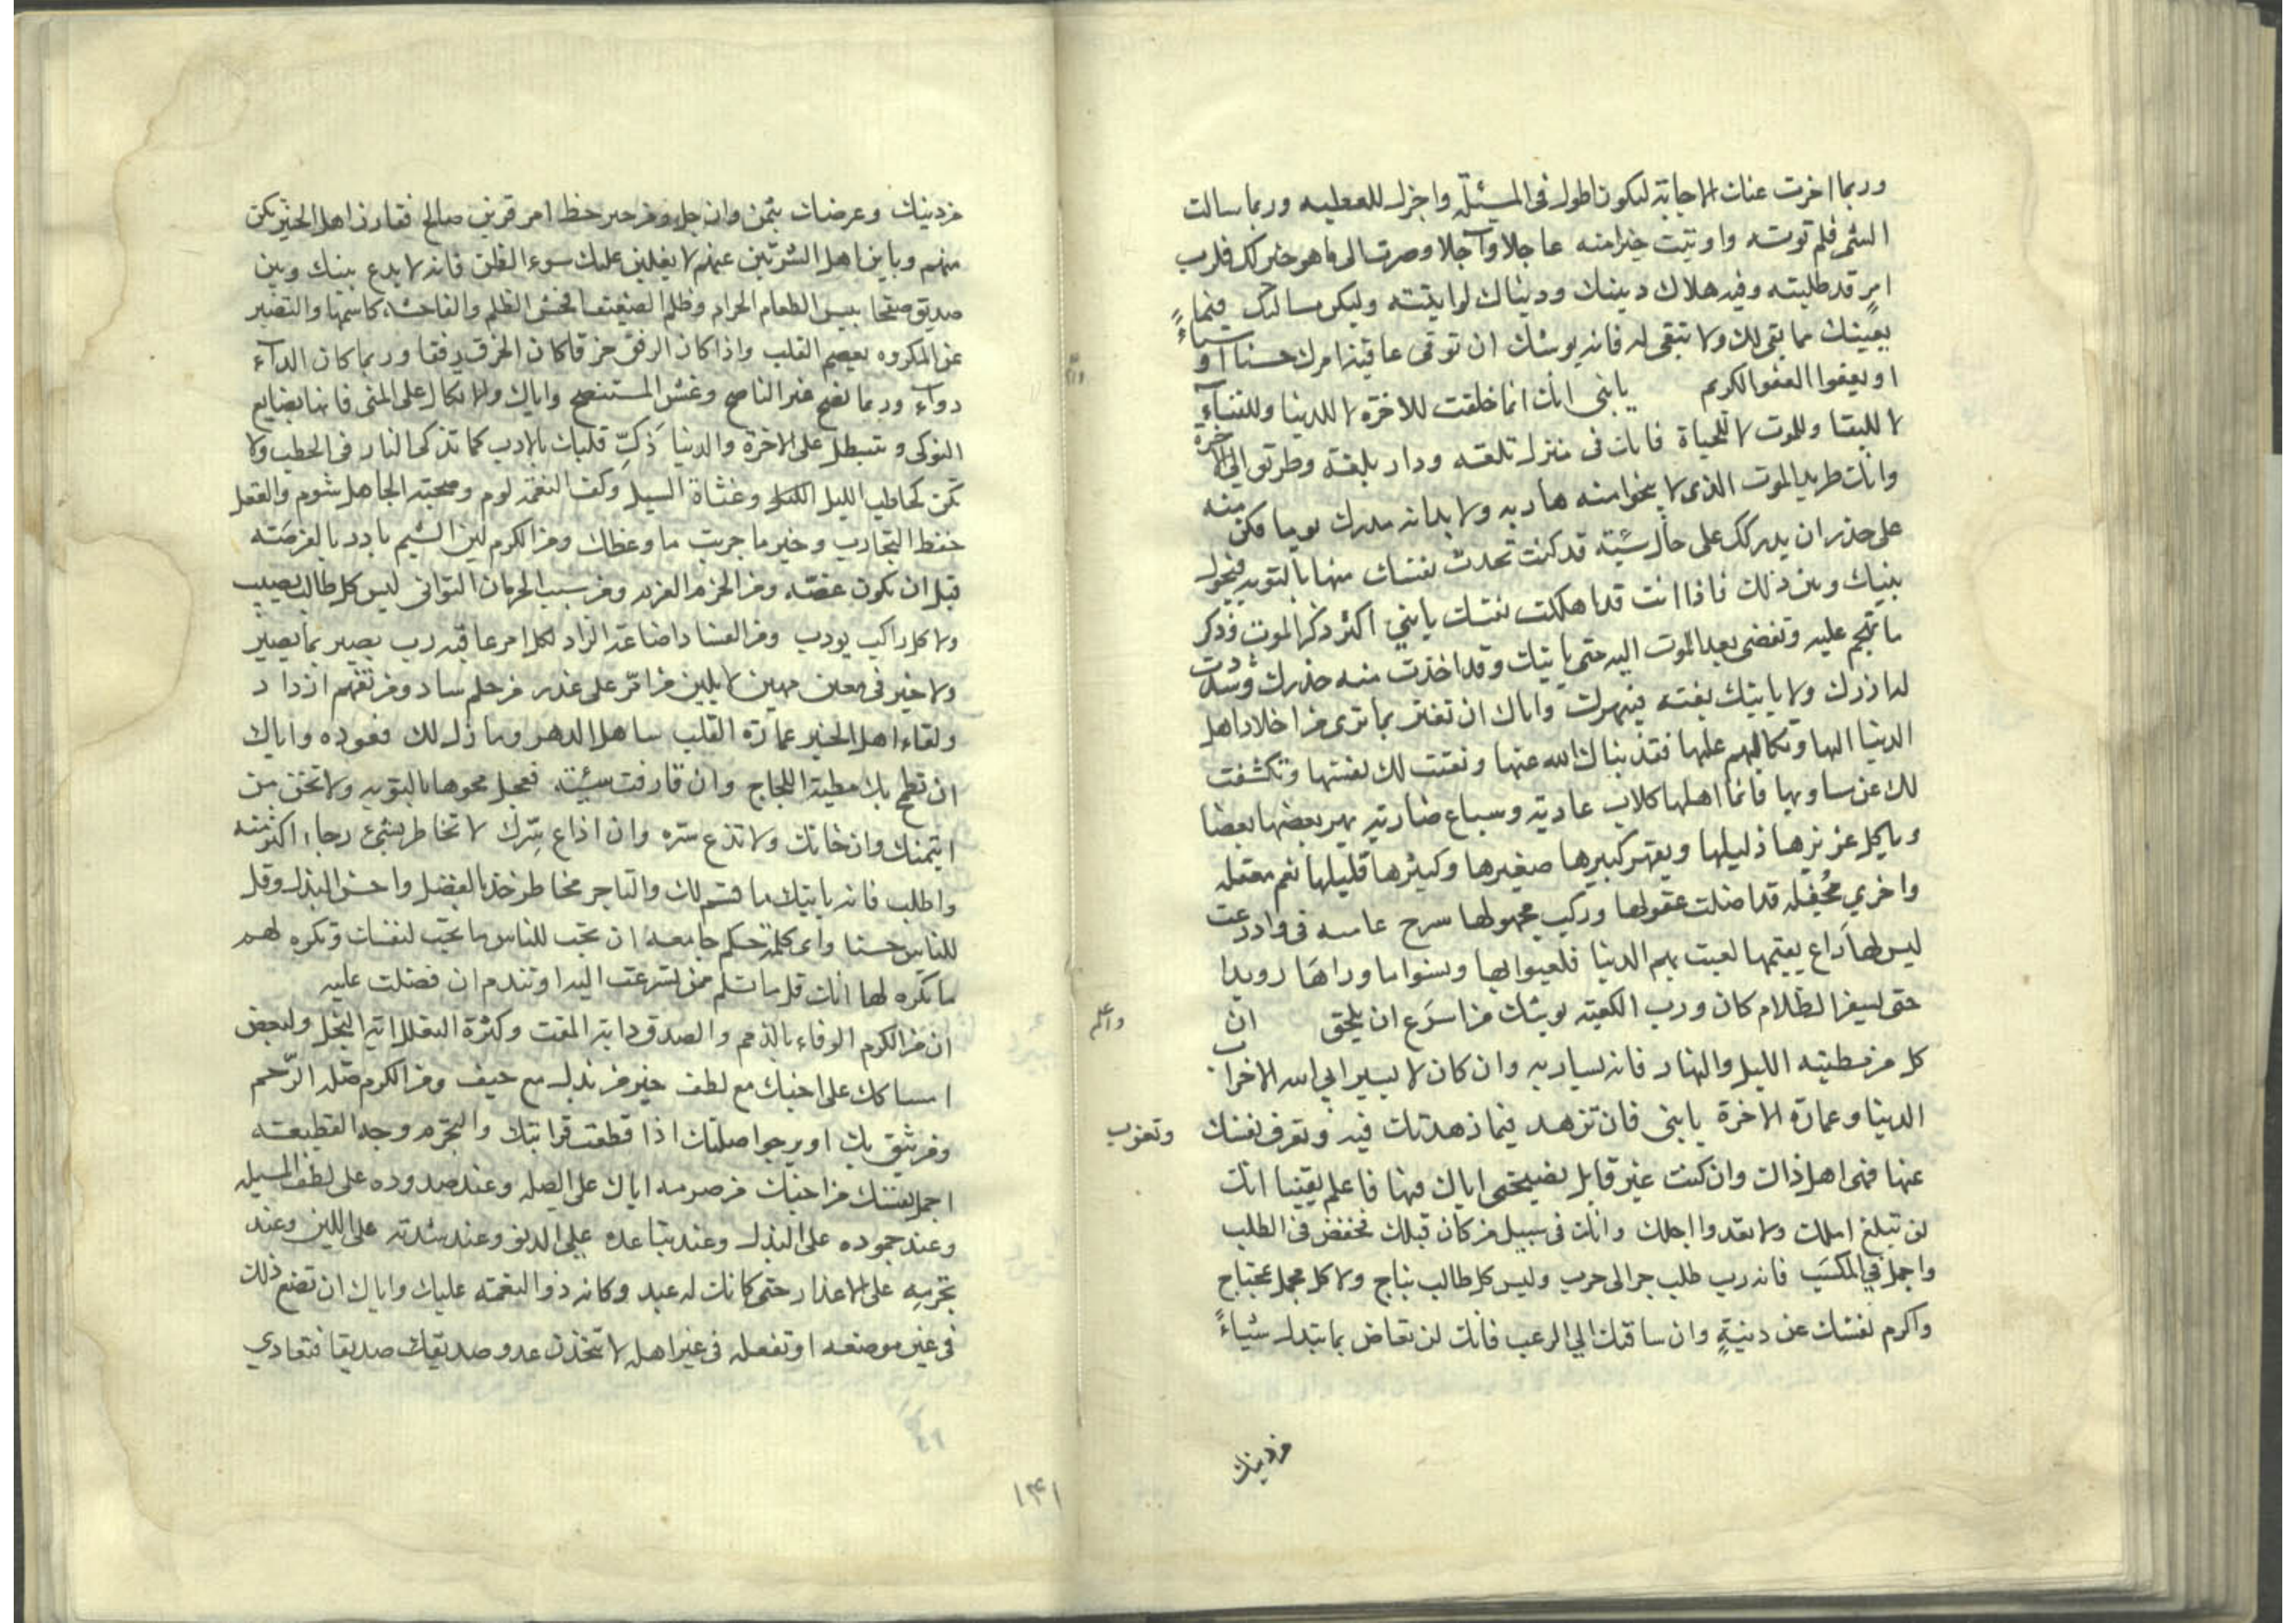 وربما اخرت عنك الاجابة ليكون اطول فى المسئلة واجزل للعطيه وربما سالت
الشئ فلم توته واوتيت خيرا منه عاجلا وآجلا وصرت الى ما هو خير لك فلرب
امر قد طلبته وفيه هلاك دينك ودنياك لو اتيته وليكن مسالتك فيما
يعينك مما بقى لك ولا تبقى له فانه يوشك ان توتى عاقبة امرك حسنا او سياءً
او يعفوا العفو الكريم يابنى انك انما خلقت للاخرة لا للدنيا وللفناء
لا للبقا وللموت لا للحياة فانك فى منزل تلقه ودار بلغة وطرتق الى الاخرة
وانك طريد الموت الذى لا ينجوا منه هاربه ولا بد انه مدرك يوما فكن منه
على حذر ان يدركك على حال سيئة قد كنت تحدث نفسك منها بالتوبه فيحول
بينك وبين ذلك فاذا انت قد اهلكت نفسك يابنى اكثر ذكر الموت وذكر
ما تهجم عليه وتفضى بعد الموت اليه حتى ياتيك وقد اخذت منه حذرك وشددت
له ازرك ولا ياتيك بغته فيبهرك واياك ان تغتر بما ترى من اخلاد اهل
الدنيا اليها وتكالبهم عليها فقد نباك الله عنها ونعتت لك نفسها وتكشفت
لك عن مساويها فانما اهلها كلاب عاديه وسباع ضاريه يهر بعضها بعضا
وياكل عزيزها ذليلها ويقهر كبيرها صغيرها وكثيرها قليلها نعم معقله
واخري مُحفله قد اضلت عقولها وركب مجهولها سرح عاسه فى واد وعث
ليس لها راع يقيمها لعبت بهم الدنيا فلعبوا بها ونسوا ما وراها رويدا
حتى يسفر الظلام كان ورب الكعبه يوشك من اسرع ان يلحق ان
واعلم
كل من مطيته الليل والنهار فانه يسار به وان كان لا يسير ابى الله الا خراب
الدنيا وعمارة الاخرة يابنى فان تزهد فيما زهدتك فيه وتعرف نفسك
وتعزب
عنها فهى اهل ذاك وان كنت غير قابل نصيحتى اياك فيها فاعلم يقينا انك
لن تبلغ املك ولا تعدوا اجلك وانك فى سبيل من كان قبلك فخفض فى الطلب
واجمل في المكسَب فانه رب طلب جر الى حرب وليس كل طالب بناج ولا كل مجمل بمحتاج
واكرم نفسك عن دنيةٍ وان ساقتك الي الرعب فانك لن تعاض بما تبتذل شياءً
من دينك
من دينك وعرضك بثمن وان جل ومن خير حظ امرء قرين صالح فقارن اهل الخير تكن
منهم وباين اهل الشر تبن عنهم لا يغلبن عليك سوء الظن فانه لا يدع بينك وبين
صديق صفحا بيس الطعام الحرام وظلم الضعيف افحش الظلم والفاحشة كاسمها والتصبر
عن المكروه يعصم القلب واذا كان الرفق خرقا كان الخرق رفقا وربما كان الدآء
دوآء وربما نصح غير الناصح وغش المستنصح واياك والاتكال على المنى فانها بضايع
النوكى وتثبط على الاخرة والدنيا ذَكِّ قلبك بالادب كما تذكى النار فى الحطب ولا
تكن كحاطب الليل وغثاة السيل وكفر النعم لوم وصحبة الجاهل شوم والعقل
حفظ التجارب وخير ما جربت ما وعظك ومن الكرم لين الشيم بادر بالفرصَته
قبل ان تكون غصّه ومن الحزم العزم ومن سبب الحرمان التوانى ليس كل طالب يصيب
ولا كل راكب يودب ومن الفساد اضاعة الزاد لكل امر عاقبه رب بصير بما يصير
ولا خير فى معين مهين لا يلين من اتّر على غدر من حلم ساد ومن تفهم ازداد
ولقاء اهل الخير عمارة القلب ساهل الدهر وما ذل لك قعوده واياك
ان تطمح بك مطية اللجاج وان قارفت سيئة فعجل محوها بالتوبه ولا تخن من
ايتمنك وان خانك ولا تذع سرّه وان اذاع سِرّك لا تخاطر بشئ رجاء اكثر منه
واطلب فانه ياتيك ما قسم لك والتاجر مخاطر خذ بالفضل واحسن البذل وقل
للناس حسنا واى كلمة حكم جامعه ان تحب للناس ما تحب لنفسك وتكره لهم
ما تكره لها انك قل ما تسلم ممن تسرعت اليه او تندم ان فضلت عليه
ان من الكرم الوفاء بالذمم والصدق داية المقت وكثرة التعلل اية البخل ولبعض
امساكك على اخيك مع لطف خير من بذل مع حيف ومن الكرم صلة الرّحم
ومن يثق بك او يرجوا صلتك اذا قطعت قرابتك والتجرم وجه القطيعته
احمل نفسك من اخيك من صرمه اياك على الصله وعند صدوده على لطف المسيله
وعند جموده على البذل وعند تباعده على الدنو وعند شدته على اللين وعند
تجرمه على الاعذار حتى كانك له عبد وكانه ذو النعمته عليك واياك ان تصنع ذلك
فى غير موضعه او تفعله فى غير اهله لا تتخذن عدو صديقك صديقا فتعادي
١٣١